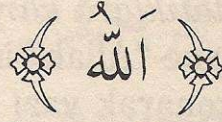 اَللّٰهُ